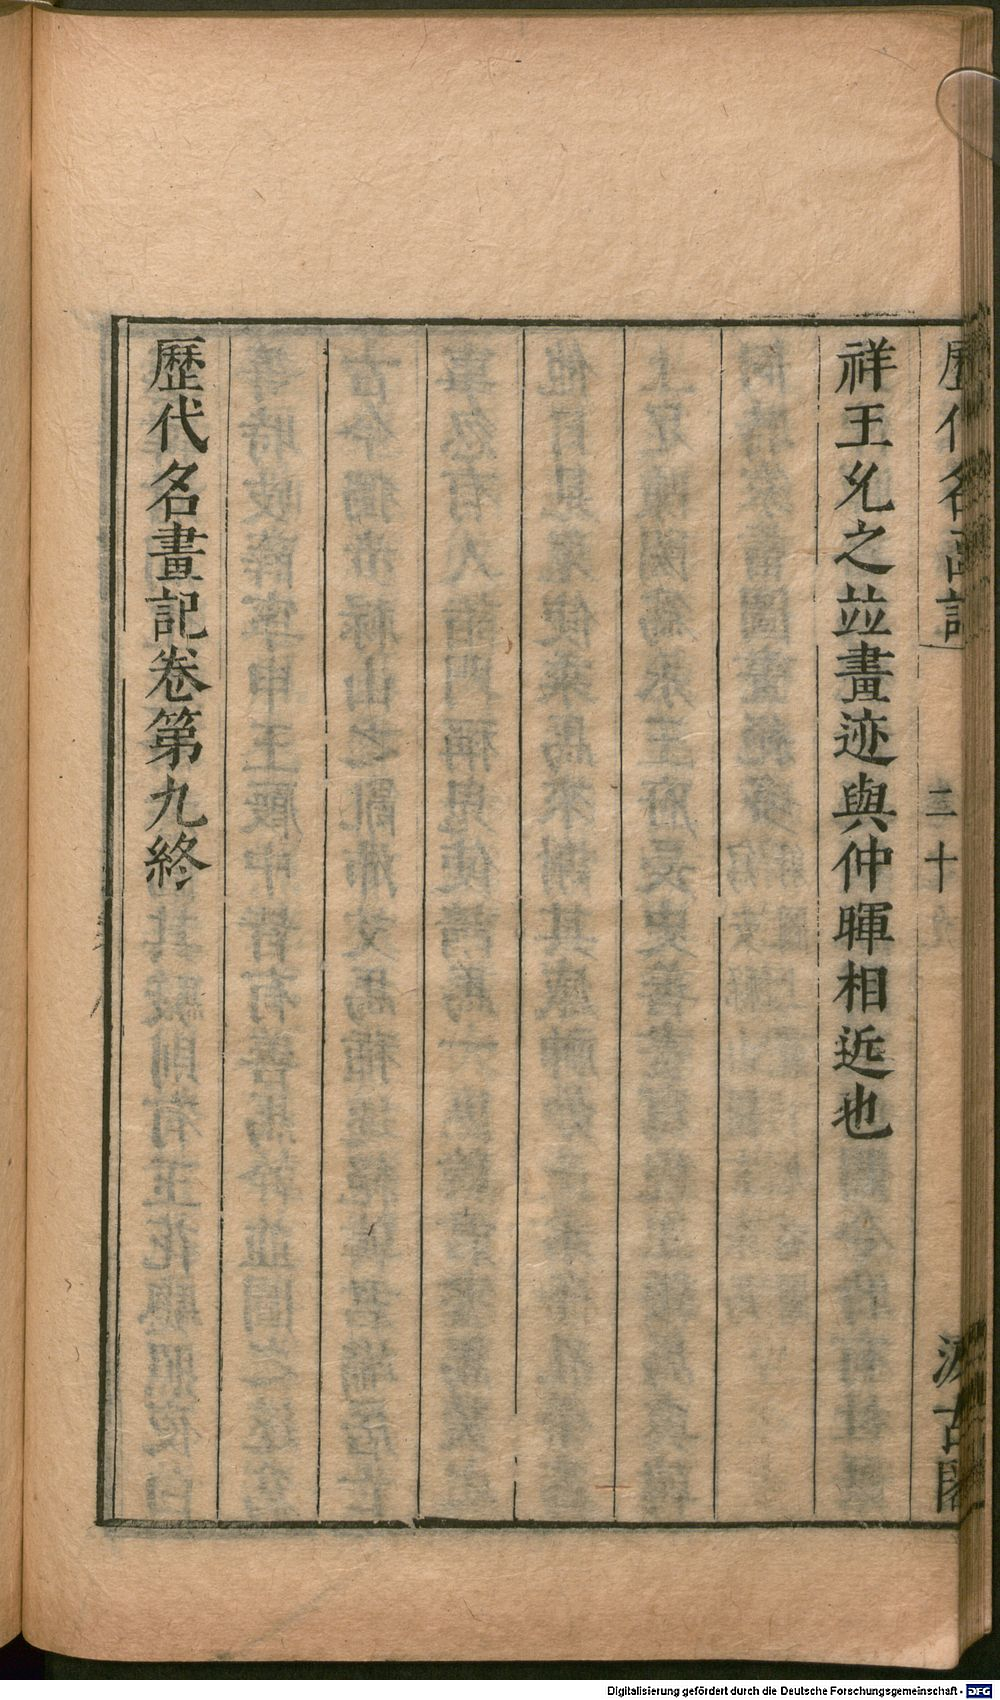 歷代名畫記
三十
汲古閣
祥王允之並畫迹與仲暉相近也
歷代名畫記卷第九終
Digitalisierung gefördert durch die Deutsche Forschungsgemeinschaft - DFG